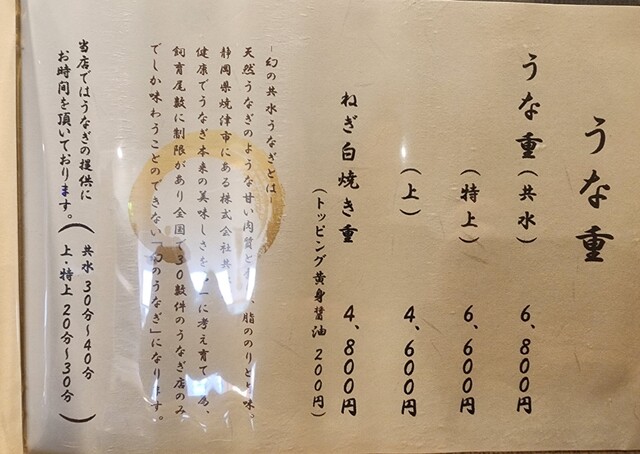 うな重
うな重(共水) 6、800円
(特上) 6、600円
(上) 4、600円
ねぎ白焼き重 4、800円
(トッピング黄身醤油 200円)
―幻の共水うなぎとは―
天然うなぎのような甘い肉質と 、脂ののりと 味。
静岡県焼津市にある株式会社共
健康でうなぎ本来の美味しさを に考え育て 為、
飼育尾数に制限があり全国で30数件のうなぎ店のみ
でしか味わうことのできない「幻のうなぎ」になります。
当店ではうなぎの提供に
お時間を頂いております。
(共水 30分~40分
上・特上 20分~30分)